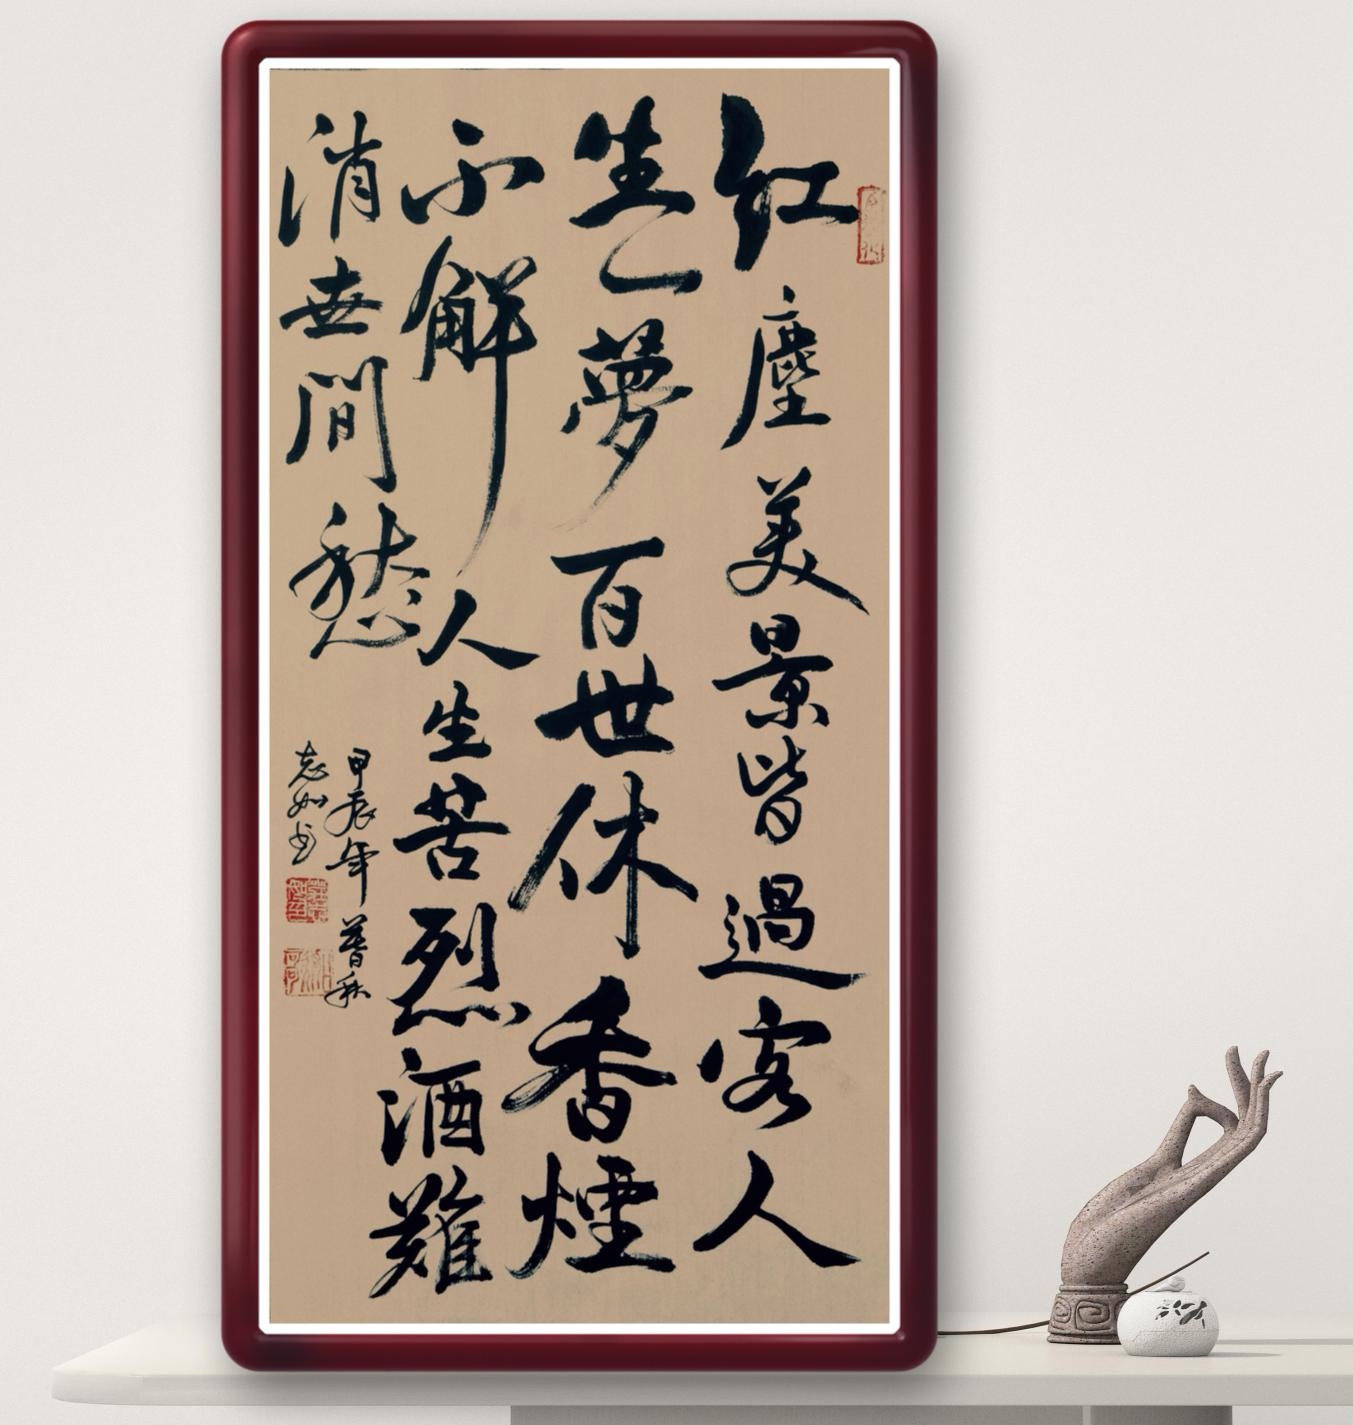 紅塵美景皆過客人
生一夢百世休香煙
不解人生苦烈酒難
消世間愁
甲辰年暮秋
志如书